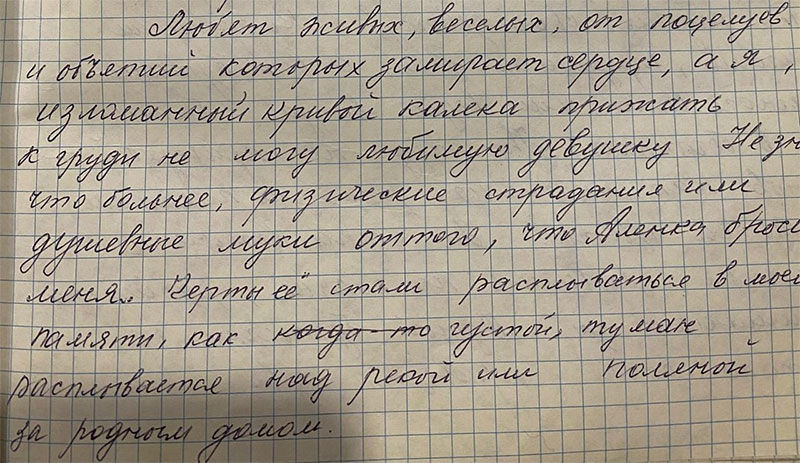 Любят живых, веселых, от поцелуев
и объятий которых замирает сердце, а я,
изломанный кривой калека прижать
к груди не могу любимую девушку Не зн
что больнее, физические страдания или
душевные муки оттого, что Аленка броси
меня. Черты её стали расплываться в моей
памяти, как когда-то густой, туман
расплывается над рекой или поляной
за родным домом.